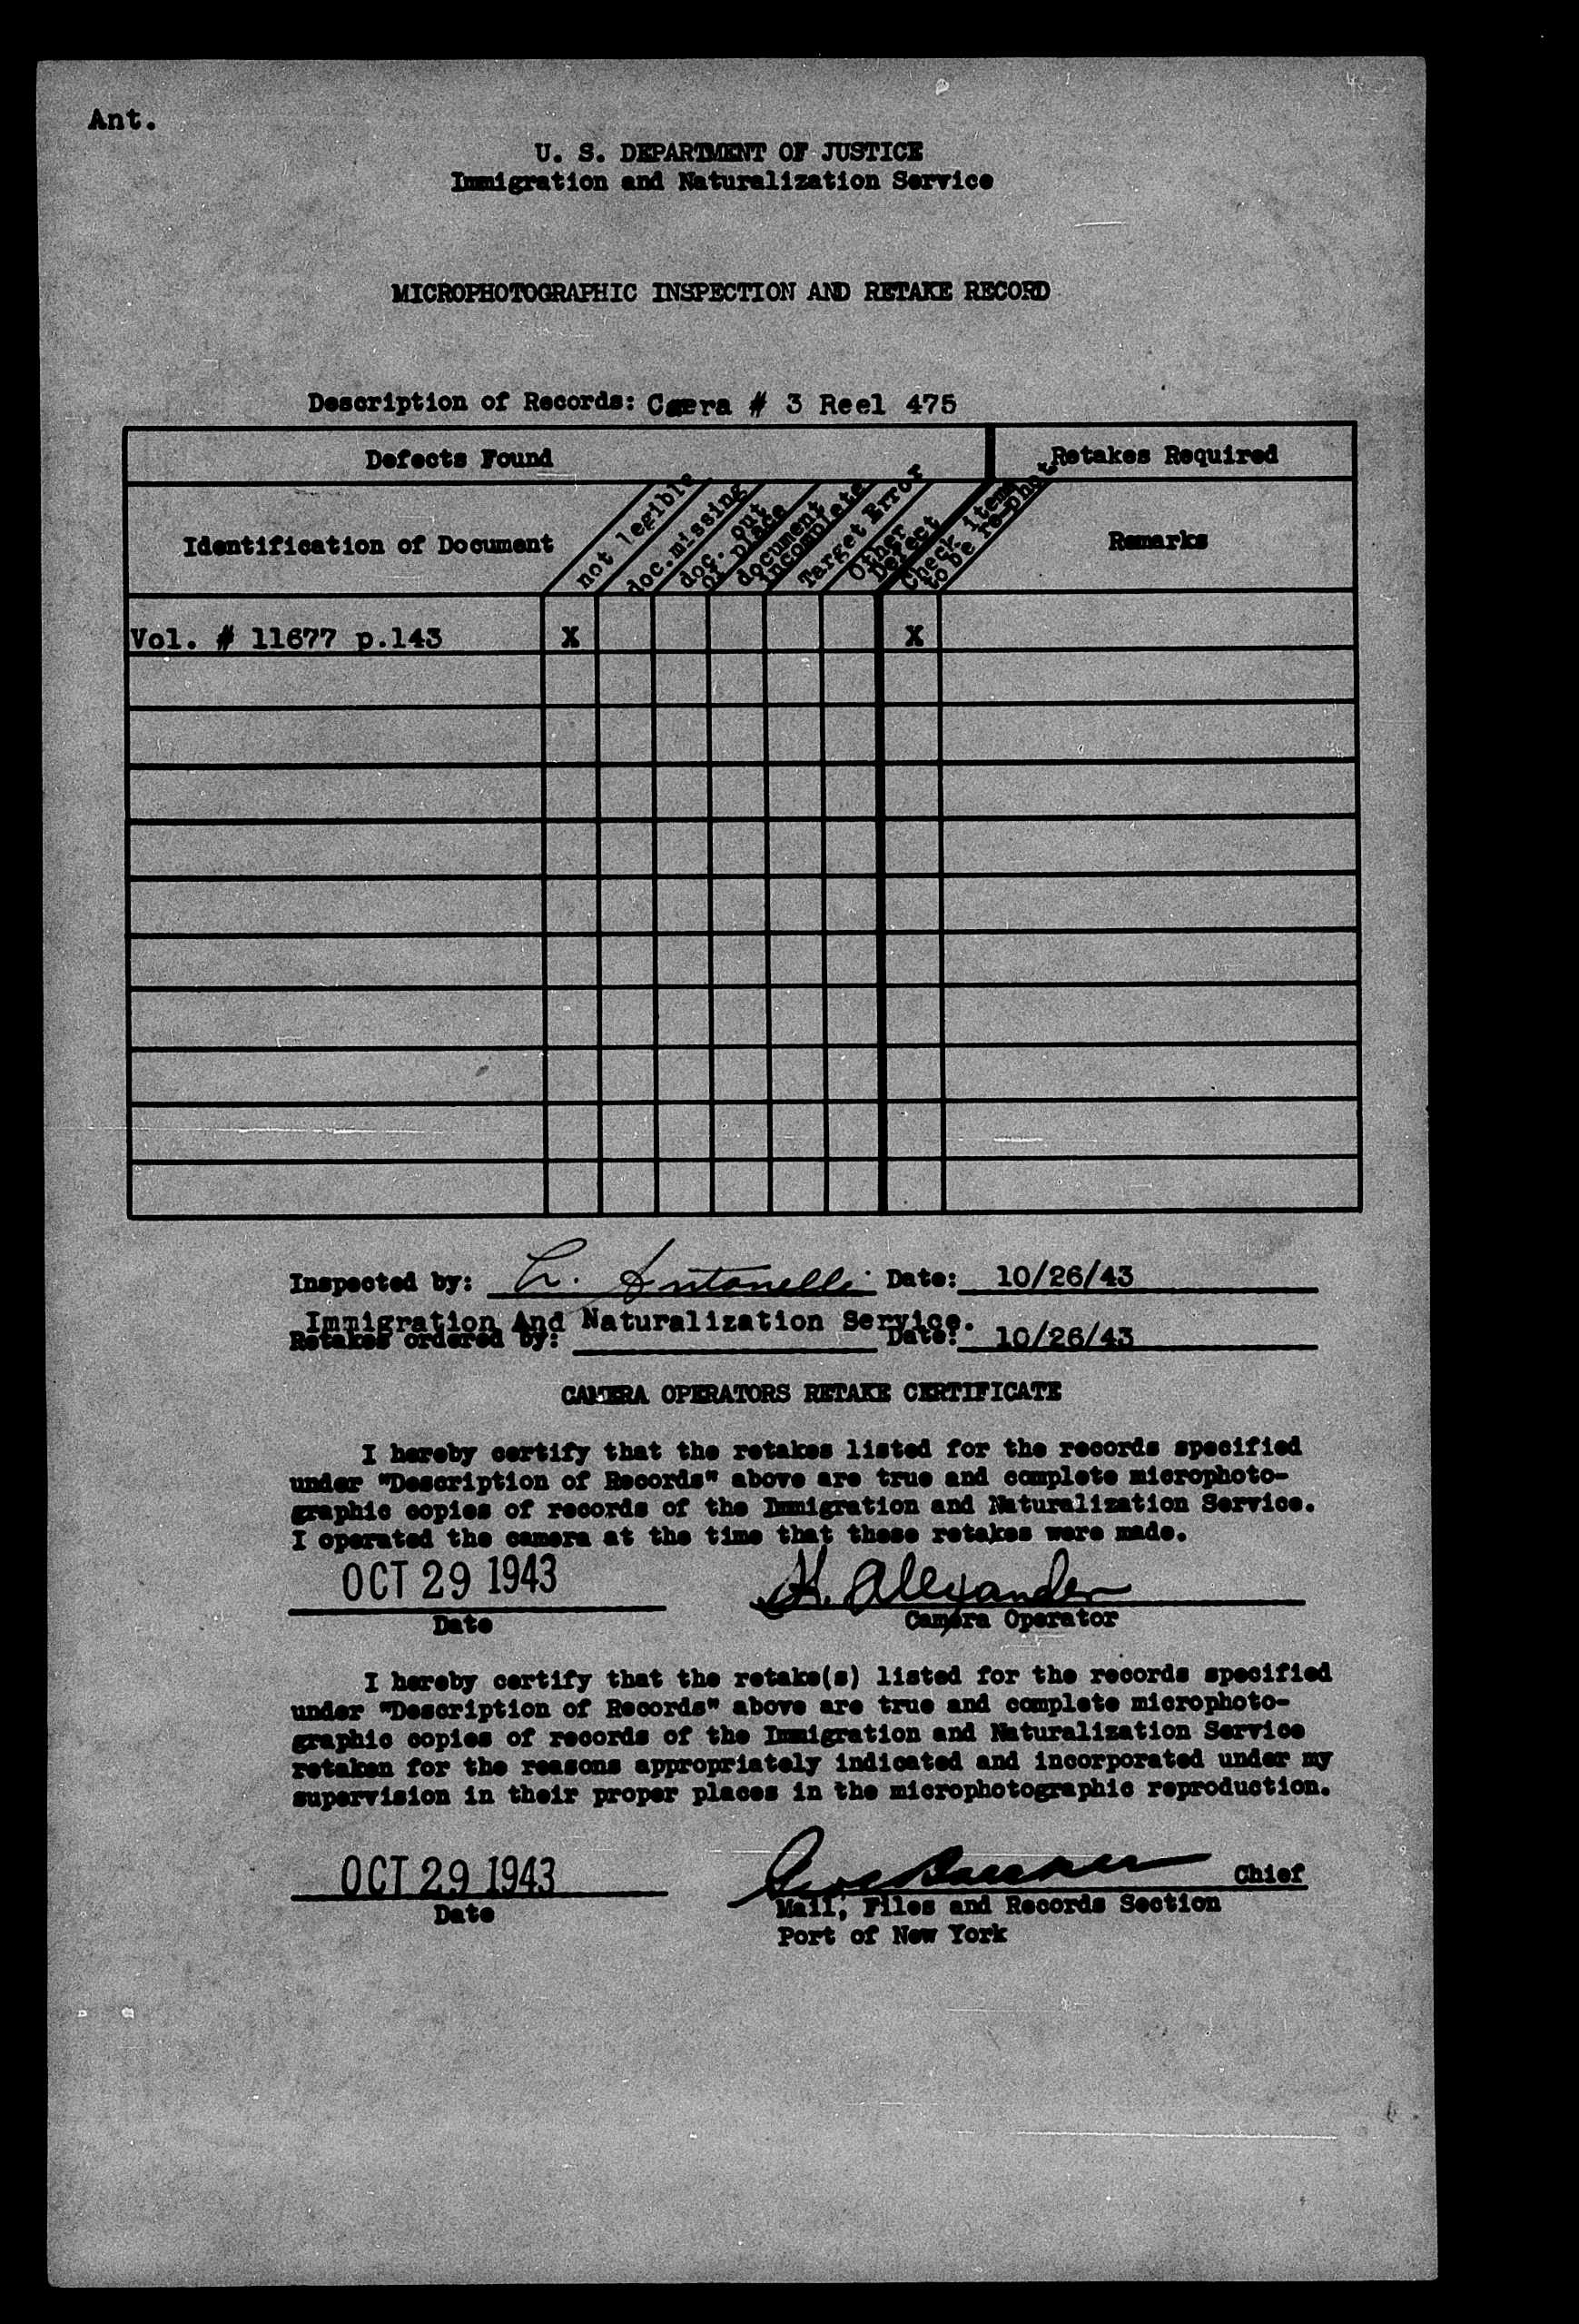 Ant.
U. S. DEPARTMENT OF JUSTICE
Immigration and Naturalization Service
MICROPHOTOGRAPHIC INSPECTION AND RETAKE RECORD
Description of Records: Camera # 3 Reel 475
Defects Found
Retakes Required
Identification of Document
not legible
doc. missing
doc. out
of place
document
incomplete
Target Error
Other
Defect
Check items
to be re-phot
Remarks
Vol. # 11677 p.143 X X
Inspected by: L. Antonelli Date: 10/26/43
Immigration And Naturalization Service.
Retakes ordered by: Date: 10/26/43
CAMERA OPERATORS RETAKE CERTIFICATE
I hereby certify that the retakes listed for the records specified
under "Description of Records" above are true and complete microphoto-
graphic copies of records of the Immigration and Naturalization Service.
I operated the camera at the time that these retakes were made.
OCT 29 1943 H. Alexander
Date Camera Operator
I hereby certify that the retake(s) listed for the records specified
under "Description of Records" above are true and complete microphoto-
graphic copies of records of the Immigration and Naturalization Service
retaken for the reasons appropriately indicated and incorporated under my
supervision in their proper places in the microphotographic reproduction.
OCT 29 1943 Chief
Date Mail, Files and Records Section
Port of New York